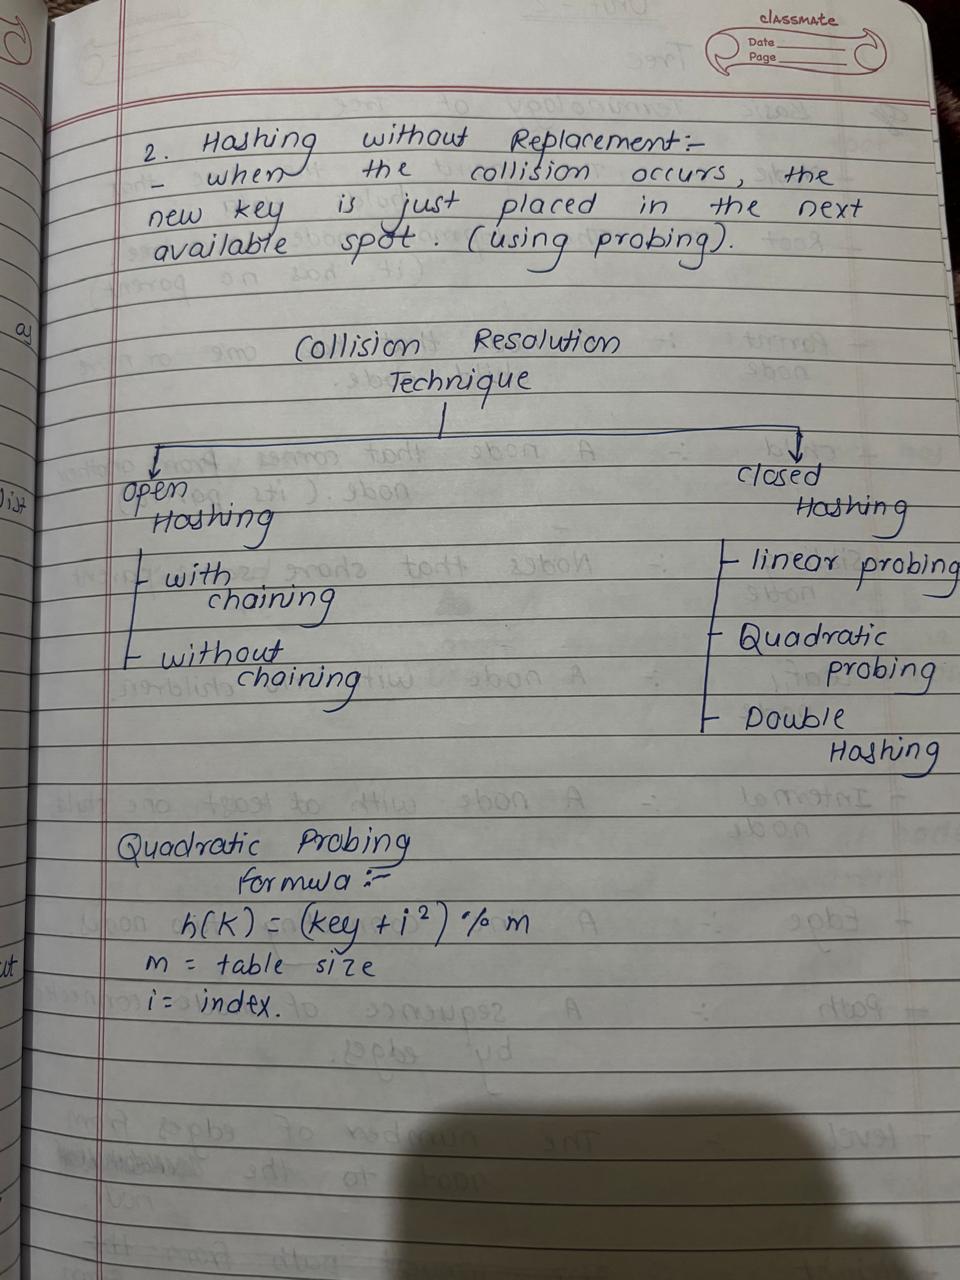 classmate
Date
Page
2. Hashing without Replacement:-
- when the collision occurs, the
new key is just placed in the next
available spot. (using probing).
Collision Resolution
Technique
open
Hashing
closed
Hashing
with
chaining
without
chaining
linear probing
Quadratic
probing
Double
Hashing
Quadratic Probing
formula :-
h(K) = (key + i²) % m
m = table size
i = index.